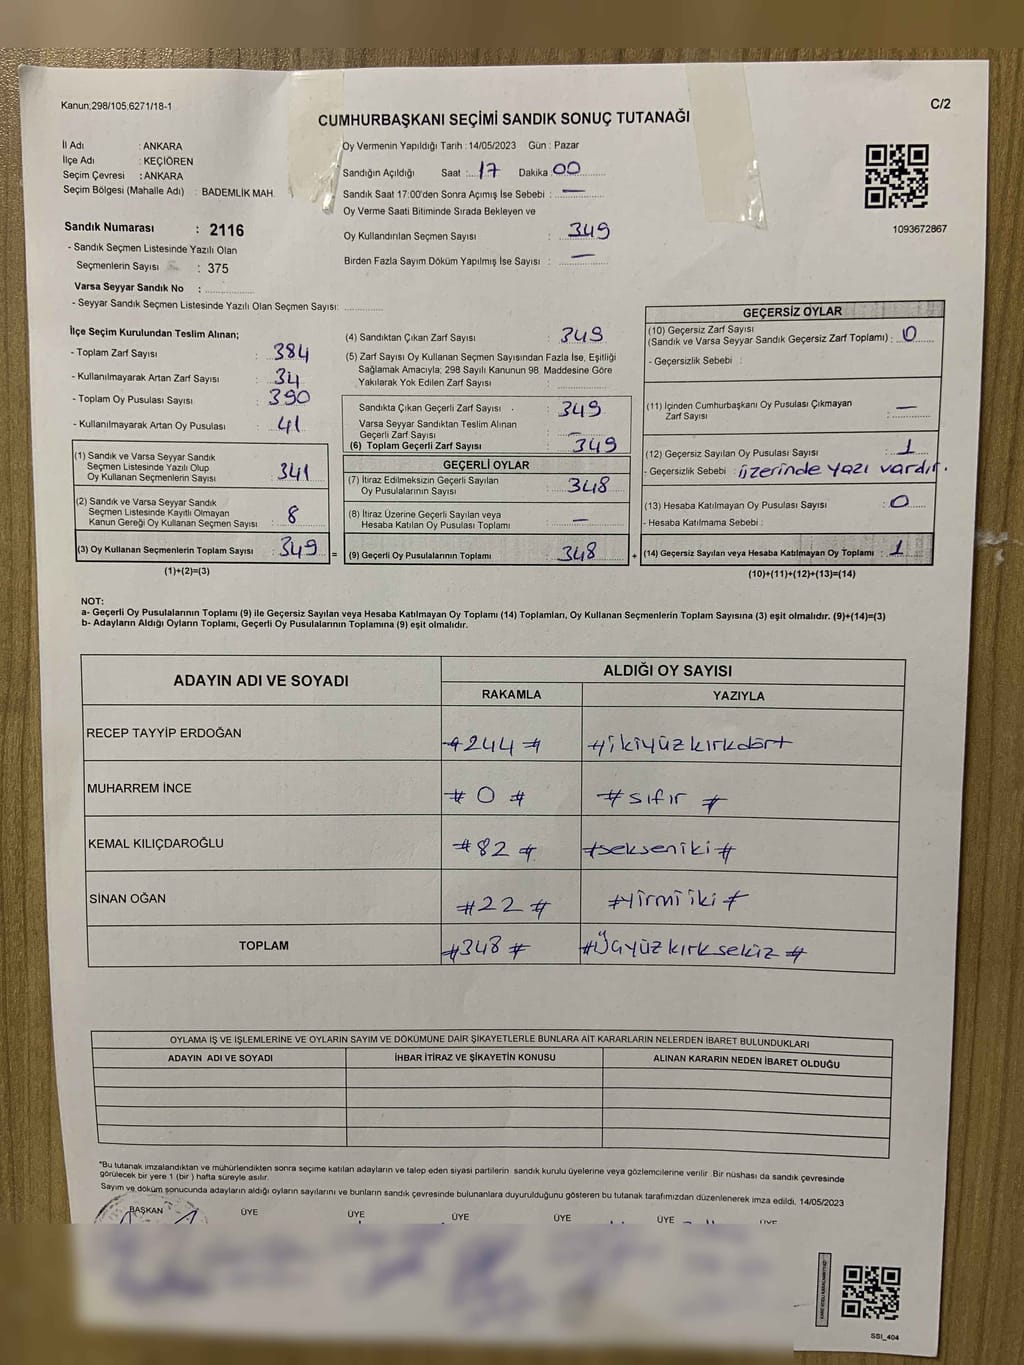 Kanun;298/105,6271/18-1
C/2
CUMHURBAŞKANI SEÇİMİ SANDIK SONUÇ TUTANAĞI
İl Adı : ANKARA
İlçe Adı : KEÇİÖREN
Seçim Çevresi : ANKARA
Seçim Bölgesi (Mahalle Adı) : BADEMLİK MAH.
Sandık Numarası : 2116
- Sandık Seçmen Listesinde Yazılı Olan
Seçmenlerin Sayısı : 375
Varsa Seyyar Sandık No :
- Seyyar Sandık Seçmen Listesinde Yazılı Olan Seçmen Sayısı:
Oy Vermenin Yapıldığı Tarih : 14/05/2023 Gün : Pazar
Sandığın Açıldığı Saat : 17 Dakika : 00
Sandık Saat 17:00'den Sonra Açımış İse Sebebi : —
Oy Verme Saati Bitiminde Sırada Bekleyen ve
Oy Kullandırılan Seçmen Sayısı : 349
Birden Fazla Sayım Döküm Yapılmış İse Sayısı : —
1093672867
İlçe Seçim Kurulundan Teslim Alınan;
- Toplam Zarf Sayısı : 384
- Kullanılmayarak Artan Zarf Sayısı : 34
- Toplam Oy Pusulası Sayısı : 390
- Kullanılmayarak Artan Oy Pusulası : 41
(1) Sandık ve Varsa Seyyar Sandık
Seçmen Listesinde Yazılı Olup
Oy Kullanan Seçmenlerin Sayısı : 341
(2) Sandık ve Varsa Seyyar Sandık
Seçmen Listesinde Kayıtlı Olmayan
Kanun Gereği Oy Kullanan Seçmen Sayısı : 8
(3) Oy Kullanan Seçmenlerin Toplam Sayısı : 349 =
(1)+(2)=(3)
(4) Sandıktan Çıkan Zarf Sayısı : 349
(5) Zarf Sayısı Oy Kullanan Seçmen Sayısından Fazla İse, Eşitliği
Sağlamak Amacıyla; 298 Sayılı Kanunun 98. Maddesine Göre
Yakılarak Yok Edilen Zarf Sayısı :
Sandıkta Çıkan Geçerli Zarf Sayısı : 349
Varsa Seyyar Sandıktan Teslim Alınan
Geçerli Zarf Sayısı : —
(6) Toplam Geçerli Zarf Sayısı : 349
GEÇERLİ OYLAR
(7) İtiraz Edilmeksizin Geçerli Sayılan
Oy Pusulalarının Sayısı : 348
(8) İtiraz Üzerine Geçerli Sayılan veya
Hesaba Katılan Oy Pusulası Toplamı : —
(9) Geçerli Oy Pusulalarının Toplamı : 348 +
GEÇERSİZ OYLAR
(10) Geçersiz Zarf Sayısı
(Sandık ve Varsa Seyyar Sandık Geçersiz Zarf Toplamı) : 0
- Geçersizlik Sebebi :
(11) İçinden Cumhurbaşkanı Oy Pusulası Çıkmayan
Zarf Sayısı : —
(12) Geçersiz Sayılan Oy Pusulası Sayısı : 1
- Geçersizlik Sebebi : üzerinde yazı vardır.
(13) Hesaba Katılmayan Oy Pusulası Sayısı : 0
- Hesaba Katılmama Sebebi :
(14) Geçersiz Sayılan veya Hesaba Katılmayan Oy Toplamı : 1
(10)+(11)+(12)+(13)=(14)
NOT:
a- Geçerli Oy Pusulalarının Toplamı (9) ile Geçersiz Sayılan veya Hesaba Katılmayan Oy Toplamı (14) Toplamları, Oy Kullanan Seçmenlerin Toplam Sayısına (3) eşit olmalıdır. (9)+(14)=(3)
b- Adayların Aldığı Oyların Toplamı, Geçerli Oy Pusulalarının Toplamına (9) eşit olmalıdır.
ADAYIN ADI VE SOYADI
ALDIĞI OY SAYISI
RAKAMLA YAZIYLA
RECEP TAYYİP ERDOĞAN #244# #ikiyüzkırkdört
MUHARREM İNCE #0# #sıfır#
KEMAL KILIÇDAROĞLU #82# #sekseniki#
SİNAN OĞAN #22# #Yirmiiki#
TOPLAM #348# #Üçyüzkırksekiz#
OYLAMA İŞ VE İŞLEMLERİNE VE OYLARIN SAYIM VE DÖKÜMÜNE DAİR ŞİKAYETLERLE BUNLARA AİT KARARLARIN NELERDEN İBARET BULUNDUKLARI
ADAYIN ADI VE SOYADI İHBAR İTİRAZ VE ŞİKAYETİN KONUSU ALINAN KARARIN NEDEN İBARET OLDUĞU
*Bu tutanak imzalandıktan ve mühürlendikten sonra seçime katılan adayların ve talep eden siyasi partilerin sandık kurulu üyelerine veya gözlemcilerine verilir. Bir nüshası da sandık çevresinde
görülecek bir yere 1 (bir) hafta süreyle asılır.
Sayım ve döküm sonucunda adayların aldığı oyların sayılarını ve bunların sandık çevresinde bulunanlara duyurulduğunu gösteren bu tutanak tarafımızdan düzenlenerek imza edildi. 14/05/2023
BAŞKAN ÜYE ÜYE ÜYE ÜYE ÜYE ÜYE
SSI_404